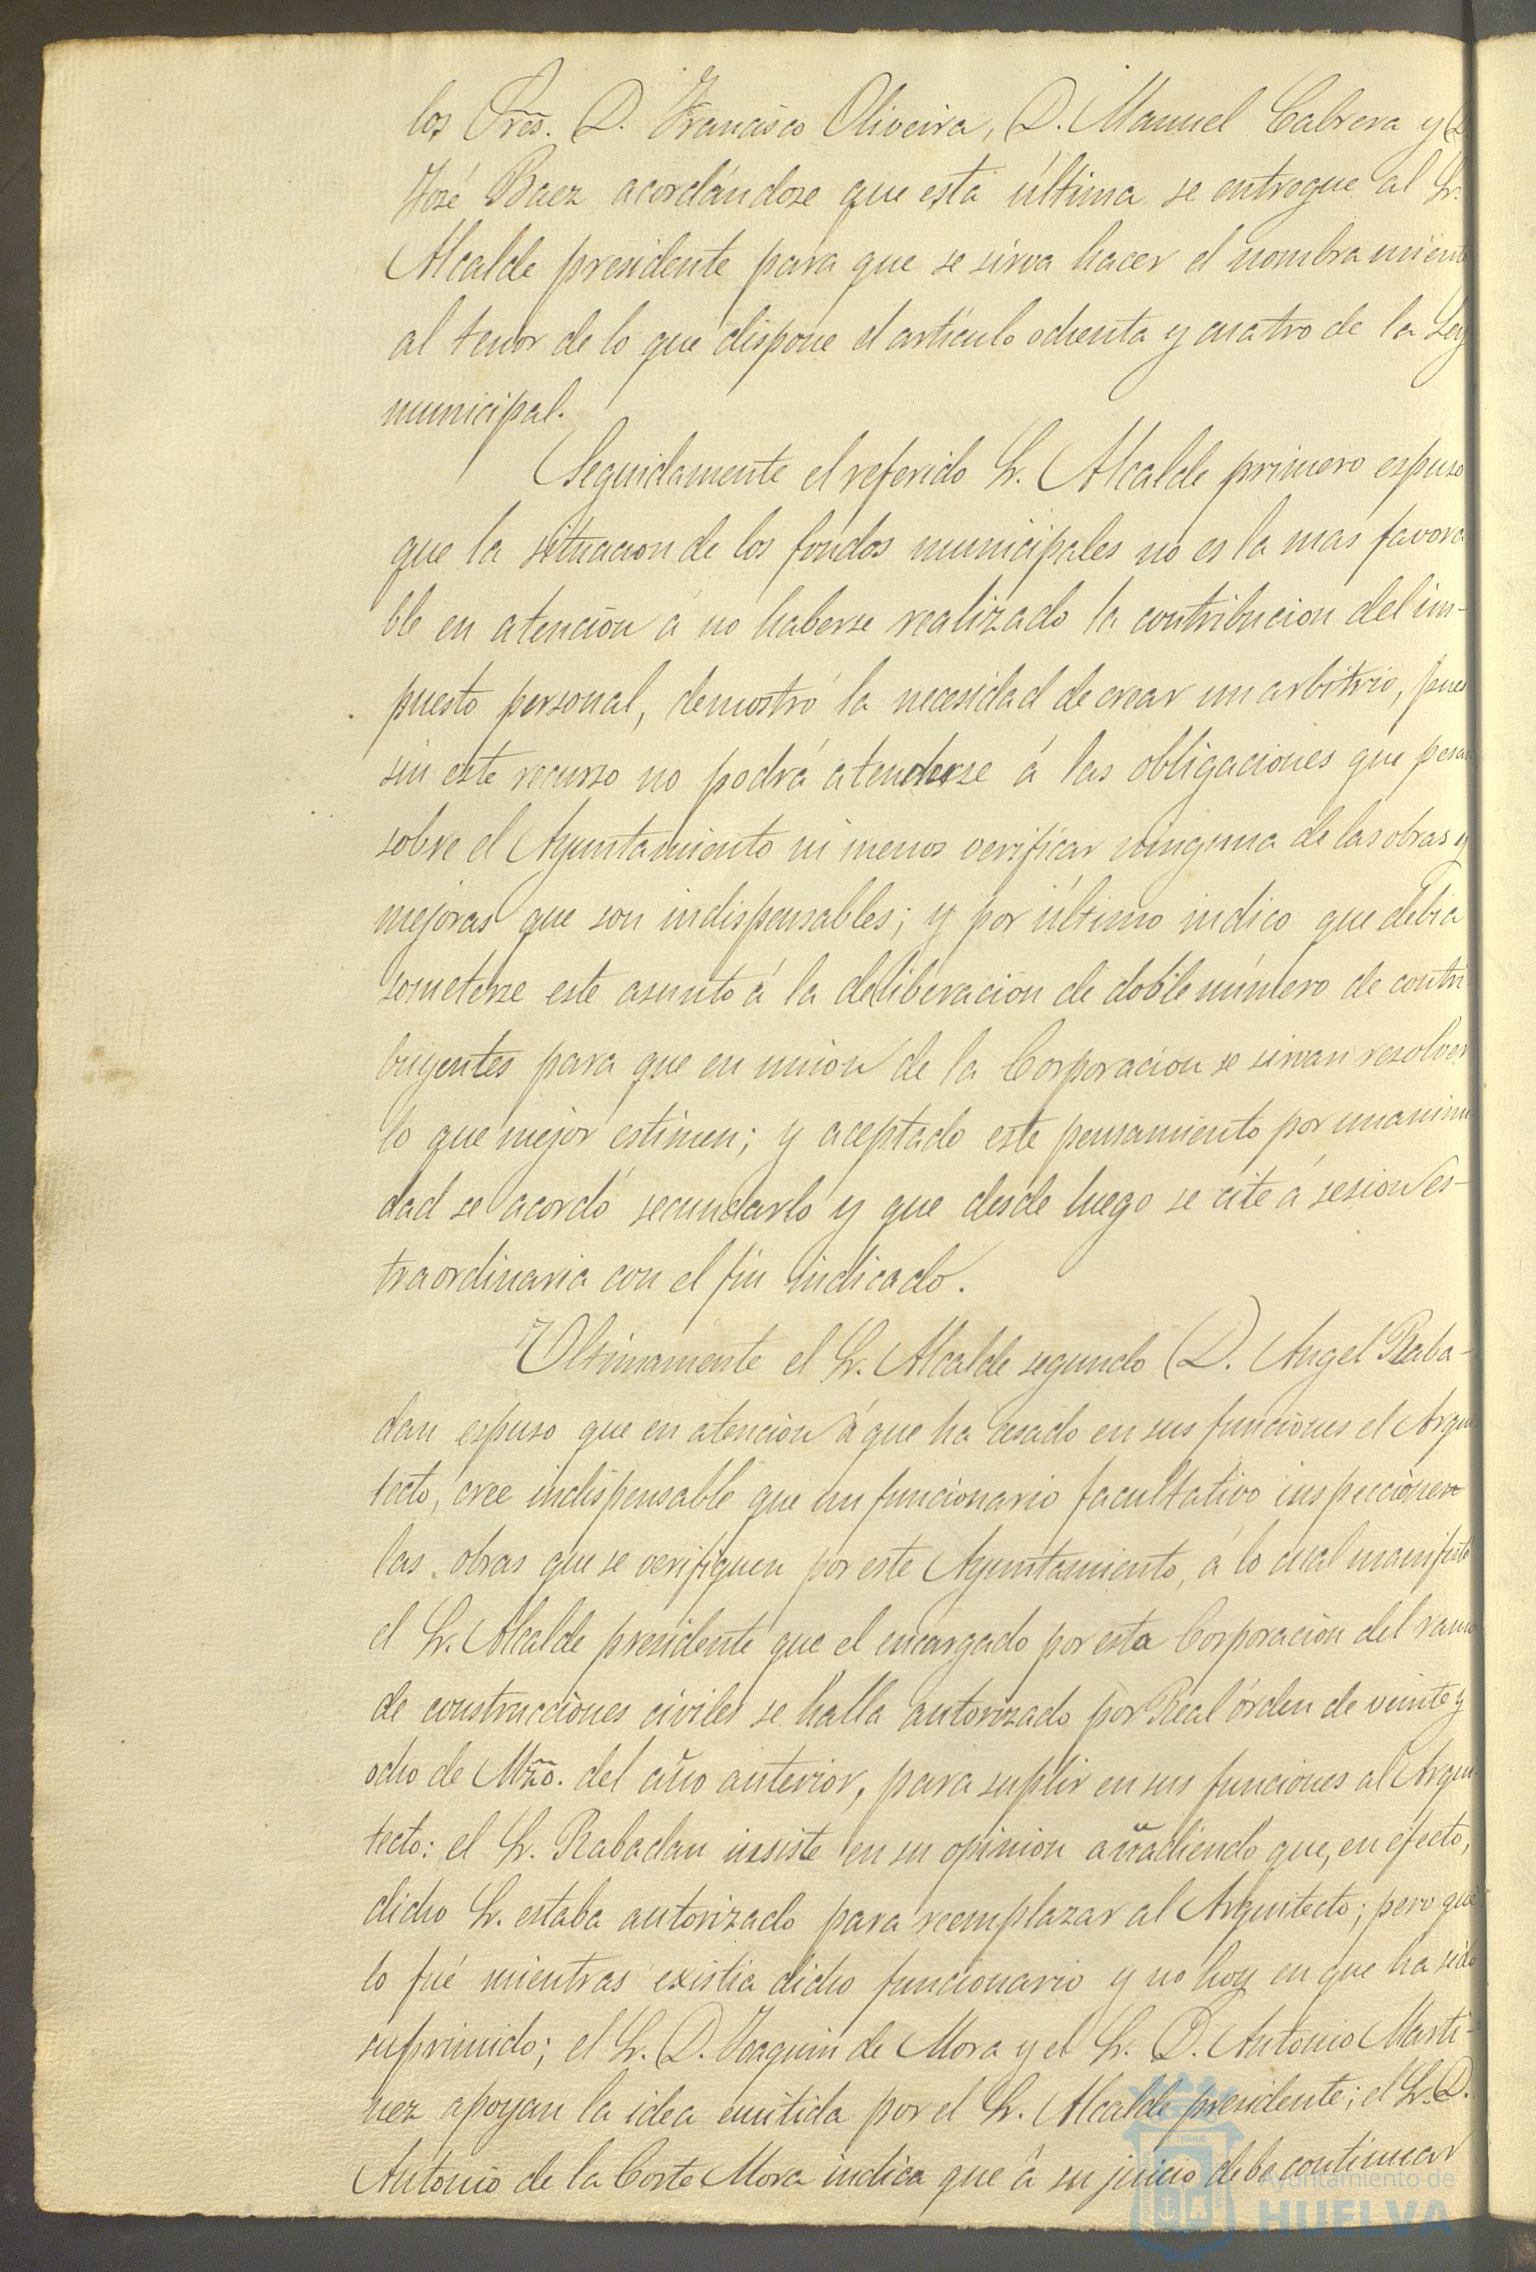 los Sres. D. Francisco Oliveira, D. Manuel Cabrera y D.
José Baez acordándose que esta última se entregue al Sr.
Alcalde presidente para que se sirva hacer el nombramiento
al tenor de lo que dispone el artículo ochenta y cuatro de la Ley
municipal.
Seguidamente el referido Sr. Alcalde primero espuso
que la situacion de los fondos municipales no es la mas favora
ble en atencion á no haberse realizado la contribucion del im-
puesto personal, demostró la necesidad de crear un arbitrio, pues
sin este recurso no podrá atenderse á las obligaciones que pesan
sobre el Ayuntamiento ni menos verificar ninguna de las obras y
mejoras que son indispensables; y por último indicó que debia
someterse este asunto á la deliberacion de doble número de contri-
buyentes para que en union de la Corporacion se sirvan resolver
lo que mejor estimen; y aceptado este pensamiento por unanimi
dad se acordó secundarlo y que desde luego se cite á sesion es-
traordinaria con el fin indicado.
Ultimamente el Sr. Alcalde segundo D. Angel Raba-
dan espuso que en atencion á que ha cesado en sus funciones el Arqui
tecto, cree indispensable que un funcionario facultativo inspeccione
las obras que se verifiquen por este Ayuntamiento, á lo cual manifestó
el Sr. Alcalde presidente que el encargado por esta Corporacion del ramo
de construcciones civiles se halla autorizado por Real órden de veinte y
ocho de Mzo. del año anterior, para suplir en sus funciones al Arqui-
tecto: el Sr. Rabadan insiste en su opinion añadiendo que, en efecto,
dicho Sr. estaba autorizado para reemplazar al Arquitecto; pero que
lo fué mientras existia dicho funcionario y no hoy en que ha sido
suprimido; el Sr. D. Joaquin de Mora y el Sr. D. Antonio Marti-
nez apoyan la idea emitida por el Sr. Alcalde presidente; el Sr. D.
Antonio de la Corte Mora indica que á su juicio debe continuar
Ayuntamiento de
HUELVA